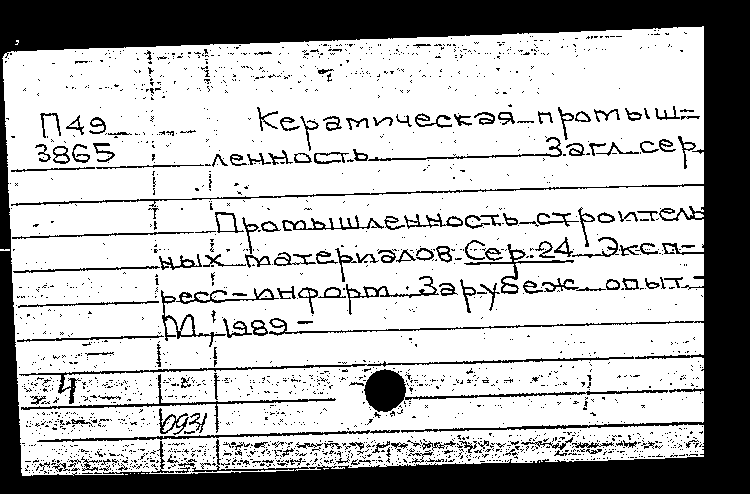 П49 Керамическая промыш=
3865 ленность Загл. сер.
Промышленность строитель
ных материалов. Сер. 24. Эксп-
ресс-информ. Зарубеж. опыт.-
М., 1989 -
4
0931